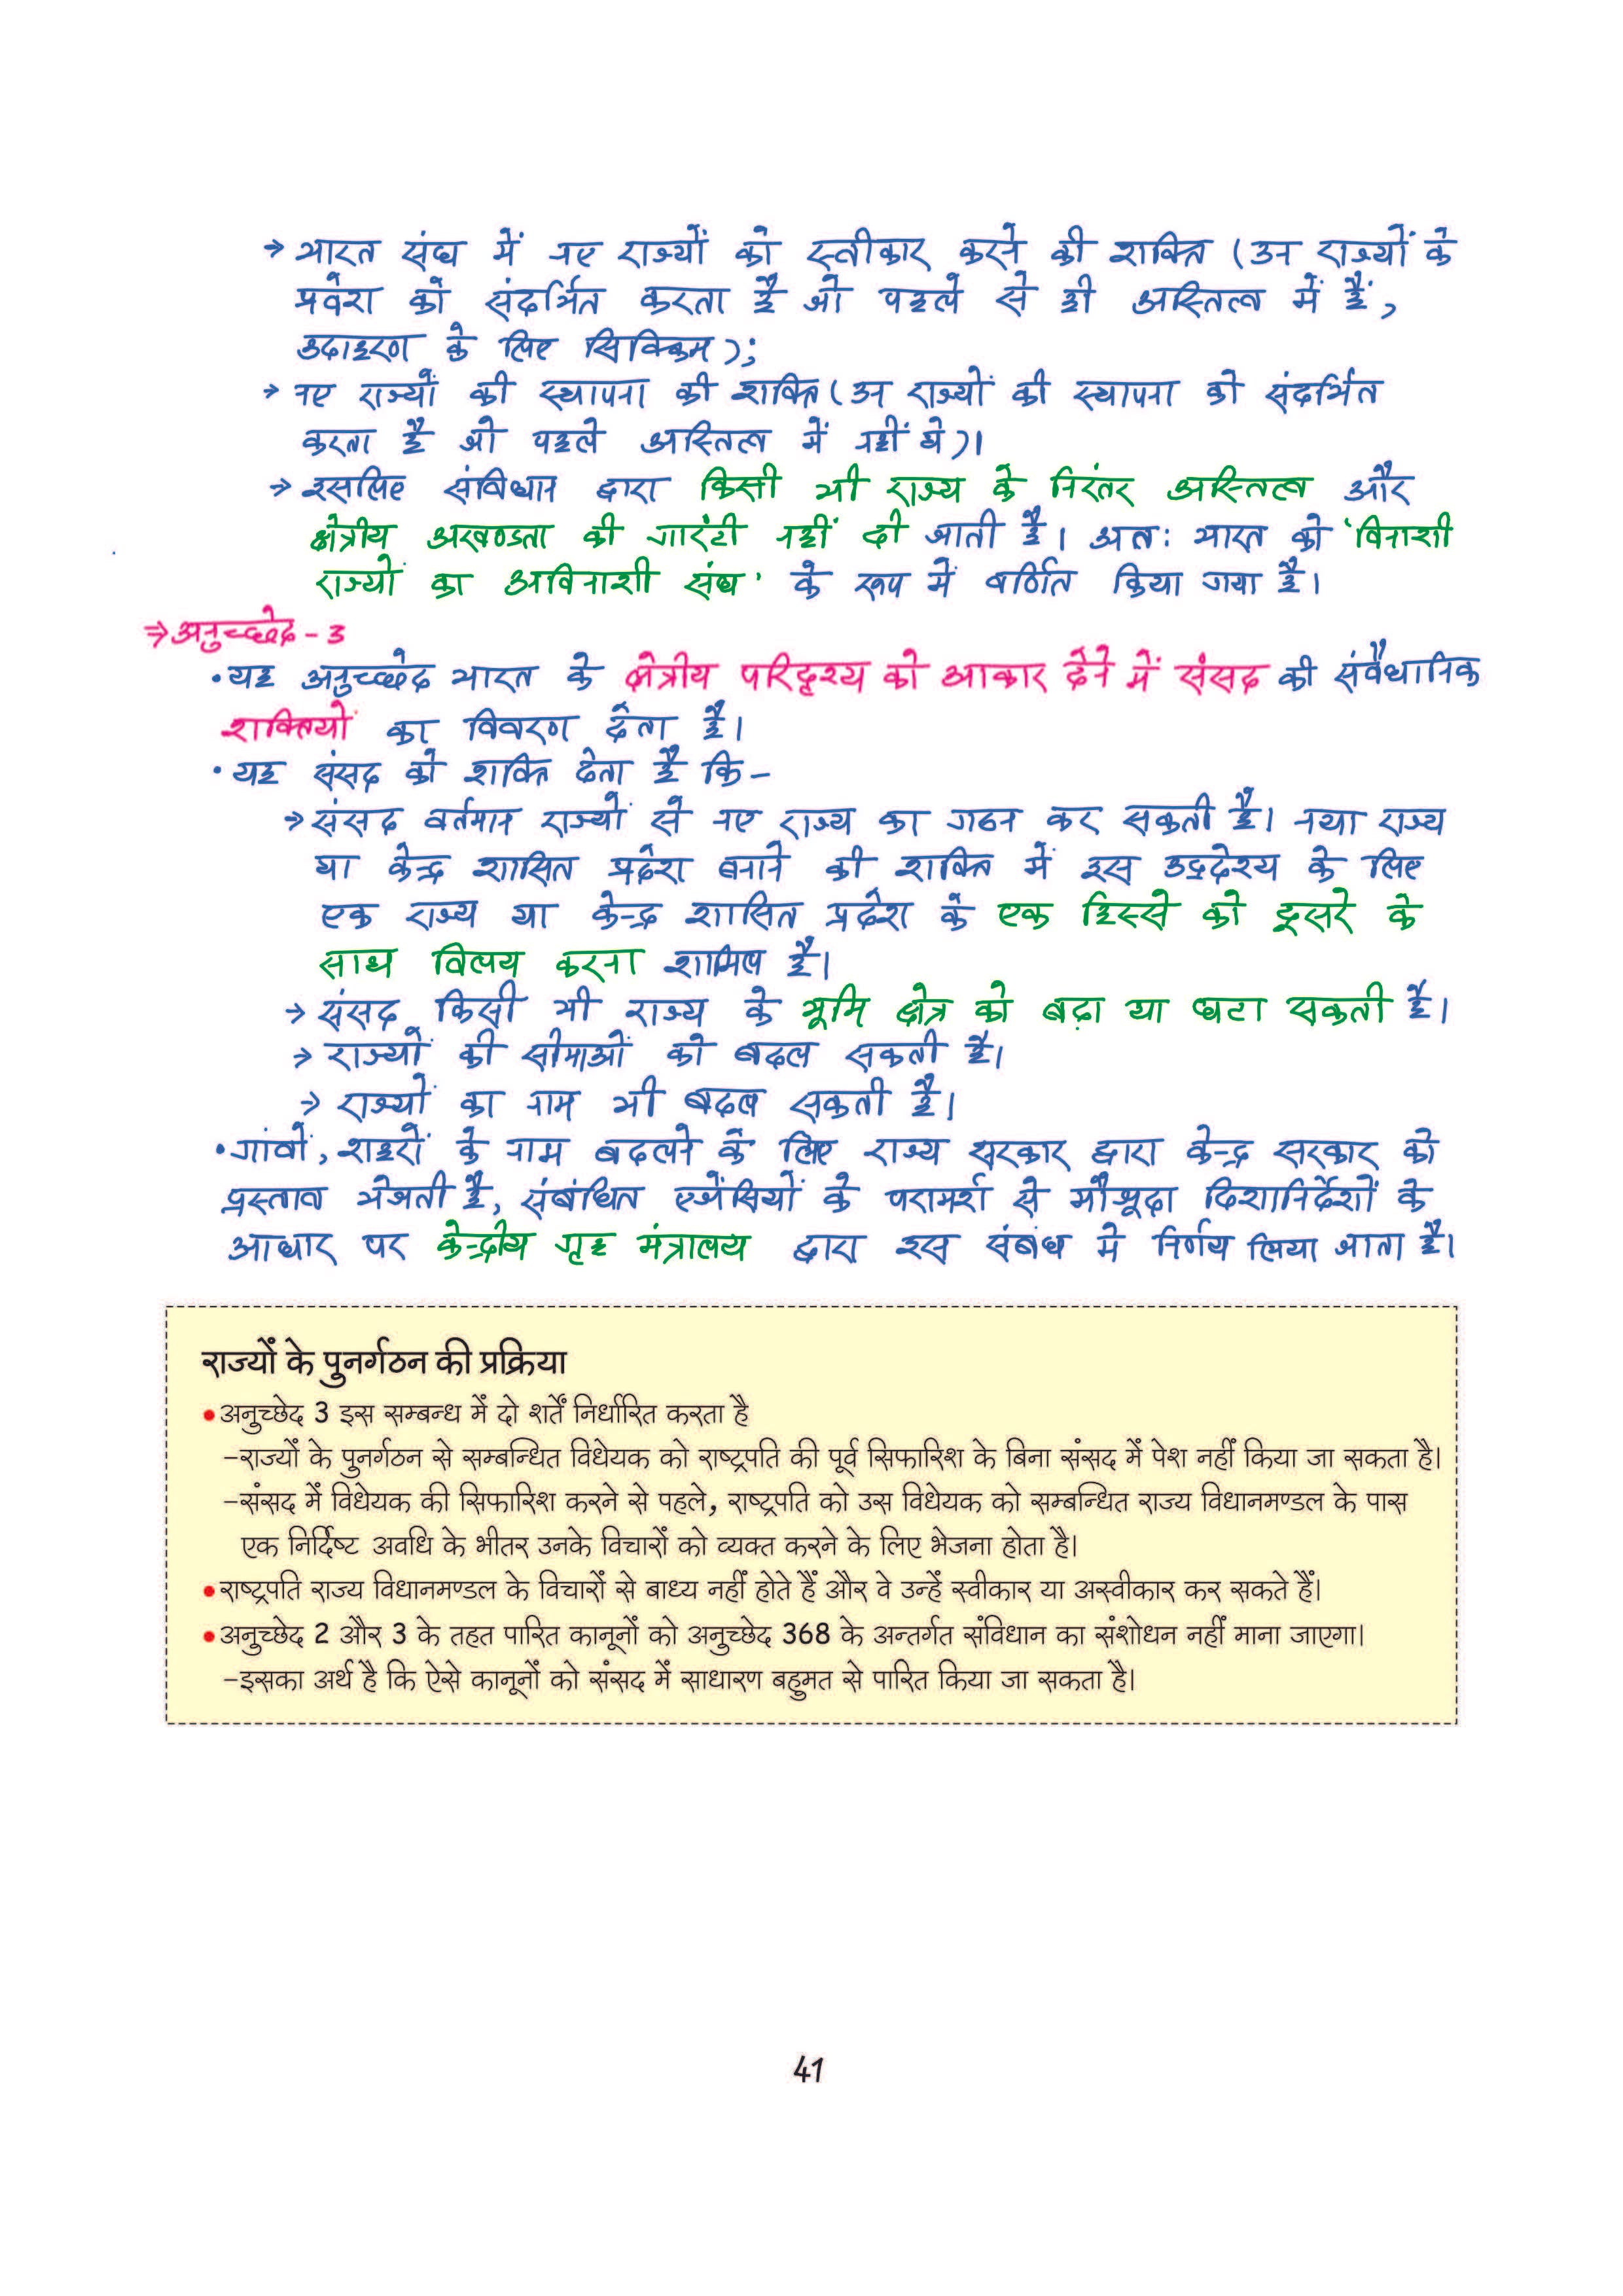 → भारत संघ में नए राज्यों को स्वीकार करने की शक्ति (उन राज्यों के
प्रवेश को संदर्भित करता है जो पहले से ही अस्तित्व में हैं,
उदाहरण के लिए सिक्किम);
→ नए राज्यों की स्थापना की शक्ति (उन राज्यों की स्थापना को संदर्भित
करता है जो पहले अस्तित्व में नहीं थे)।
→ इसलिए संविधान द्वारा किसी भी राज्य के निरंतर अस्तित्व और
क्षेत्रीय अखण्डता की गारंटी नहीं दी जाती है। अतः भारत को 'विनाशी
राज्यों का अविनाशी संघ' के रूप में वर्णित किया गया है।
⇒ अनुच्छेद - 3
• यह अनुच्छेद भारत के क्षेत्रीय परिदृश्य को आकार देने में संसद की संवैधानिक
शक्तियों का विवरण देता है।
• यह संसद को शक्ति देता है कि –
→ संसद वर्तमान राज्यों से नए राज्य का गठन कर सकती है। नया राज्य
या केन्द्र शासित प्रदेश बनाने की शक्ति में इस उद्देश्य के लिए
एक राज्य या केन्द्र शासित प्रदेश के एक हिस्से को दूसरे के
साथ विलय करना शामिल है।
→ संसद किसी भी राज्य के भूमि क्षेत्र को बढ़ा या घटा सकती है।
→ राज्यों की सीमाओं को बदल सकती है।
→ राज्यों का नाम भी बदल सकती है।
• गांवों, शहरों के नाम बदलने के लिए राज्य सरकार द्वारा केन्द्र सरकार को
प्रस्ताव भेजती है, संबंधित एजेंसियों के परामर्श से मौजूदा दिशानिर्देशों के
आधार पर केन्द्रीय गृह मंत्रालय द्वारा इस संबंध में निर्णय लिया जाता है।
राज्यों के पुनर्गठन की प्रक्रिया
• अनुच्छेद 3 इस सम्बन्ध में दो शर्तें निर्धारित करता है
–राज्यों के पुनर्गठन से सम्बन्धित विधेयक को राष्ट्रपति की पूर्व सिफारिश के बिना संसद में पेश नहीं किया जा सकता है।
–संसद में विधेयक की सिफारिश करने से पहले, राष्ट्रपति को उस विधेयक को सम्बन्धित राज्य विधानमण्डल के पास
एक निर्दिष्ट अवधि के भीतर उनके विचारों को व्यक्त करने के लिए भेजना होता है।
• राष्ट्रपति राज्य विधानमण्डल के विचारों से बाध्य नहीं होते हैं और वे उन्हें स्वीकार या अस्वीकार कर सकते हैं।
• अनुच्छेद 2 और 3 के तहत पारित कानूनों को अनुच्छेद 368 के अन्तर्गत संविधान का संशोधन नहीं माना जाएगा।
–इसका अर्थ है कि ऐसे कानूनों को संसद में साधारण बहुमत से पारित किया जा सकता है।
41